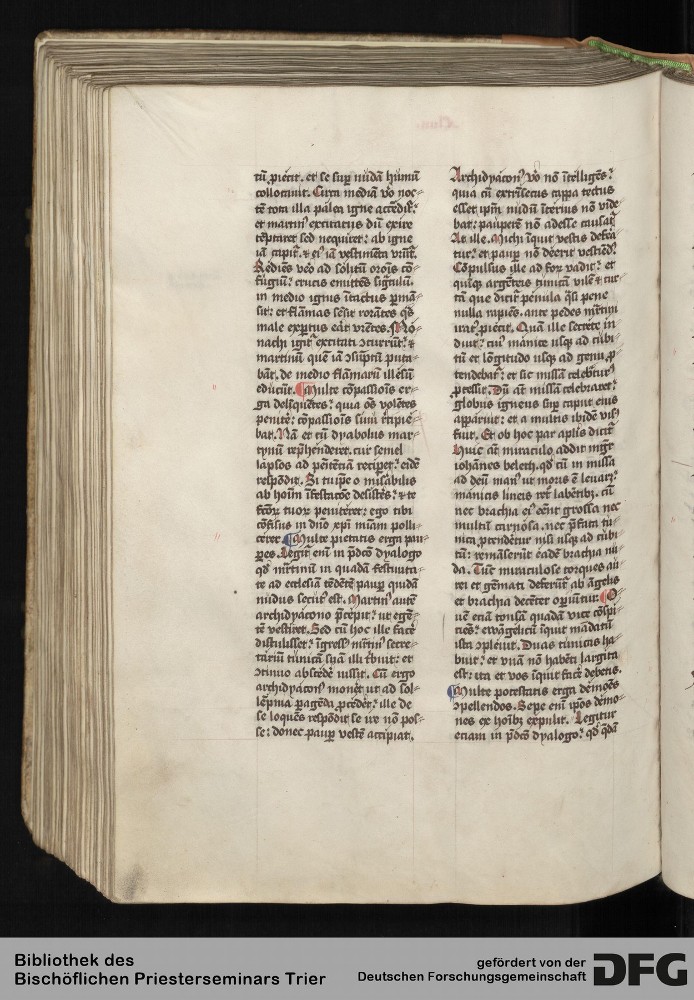 tū ꝓiecit. et se suꝑ nudā humū
collocauit. Circa mediā v̄o noc-
tē tota illa palea igne accēdit᷑:
et martin᷒ excitatus dū exire
tēptaret sed nequiret: ab igne
iā capit᷑. ⁊ ei᷒ iā vestimēta vrūt᷑.
Rediēs v̄o ad solitū or̄onis cō-
fugiū: crucis emittēs signaculū.
in medio ignis ītactus ꝑmā-
sit: et flāmas sēsit rorātes q̄s
male exꝑtus erāt vrētes. Mō-
nachi igit᷑ excitati ɔcurrūt: ⁊
martinū quē iā ɔsūptū puta-
bāt. de medio flāmarū illesū
educūt. Multe cōpassiōis er-
ga delīquētes: quia oēs volētes
penitē: cōpassiōis sinu recipie-
bat. Nā et cū dyabolus mar-
tynū rep̄henderet. cur semel
lapsos ad pēnitēciā reciꝑet: eidē
respōdit. Si tu ip̄e o misabilis
ab hoīm īfestacōe desistēs: ⁊ te
fcōꝝ tuoꝝ peniteret: ego tibi
cōfisus in dn̄o xp̄i miāꝫ polli-
cerer. Multe pietatis erga pau-
ꝑes. Legit᷑ enī in p̄dc̄o dyalogo
qd̄ m̄rtinū in quadā festiuita-
te ad ecclesiā tēdētē paup̄ quidā
nudus secut᷒ est. Martin᷒ autē
archidyacono p̄cepit: ut egē-
tē vestiret. Sed cū hoc ille facē
distulisset: īgress᷒ m̄rtin᷒ secre-
tariū tunicā suā illi t̄buit: et
ɔtinuo abscēdē iussit. Cū ergo
archidyacon᷒ monet ut ad sol-
lēpnia ꝑagēda ꝓcedēt: ille de
se loquēs respōdit se ire nō pos-
se: donec paup̄ vestē accipiat.
Archidyacon᷒ v̄o nō ītelligēs:
quia cū extrīsecus cappa tectus
esset ip̄m nudū īterius nō vide
bat: pauperē nō adesse causat᷑
At ille. Michi īquit vestis defera-
tur: et paup̄ nō deerit vestiēd᷒.
Cōpulsus ille ad foꝝ vadit: et
quīqꝫ argēteis tunicā vilē ⁊ cur-
tā que dicit᷑ penula q̄si pene
nulla rapiēs. ante pedes m̄rtini
irat᷒ ꝓiecit. Quā ille secrete in
duit: cui᷒ manice usqꝫ ad cubi-
tū et lōgitudo usqꝫ ad genu ꝓ-
tendebat᷑: et sic missā celebratur᷒
ꝓcessit. Dū aūt missā celebraret:
globus igneus suꝑ caput eius
apparuit: et a multis ibidē vis᷒
fuit. Et ob hoc par aplīs dicit᷑
Huic aūt miraculo addit mḡr
iohānes beleth. qd̄ cū in missa
ad deū man᷒ ut moris ē leuar̄:
manicis lineis ret᷑ labētibꝫ. cū
nec brachia ei᷒ eēnt grossa nec
multū carnosa. nec p̄fata tu-
nica ꝓtendētur nisi usqꝫ ad cubi-
tū: remāserūt eadē brachia nu-
da. Tūc miraculose torques au-
rei et gēmati deferūt᷑ ab āgelis
et brachia decēter oꝑiūtur. O-
uē etiā tonsā quadā vice cōspi-
ciēs: ewāgelicū īquit mādatū
ista ɔpleuit. Duas tunicas ha-
buit: et vnā nō habēti largita
est: ita et vos īquit facē debetis.
Multe potestatis erga demōes
ɔpellendos. Sepe enī ip̄os demo-
nes ex hoībꝫ expulit. Legitur
etiam in p̄dc̄o dyalogo: qd̄ q̄dā
Bibliothek des
Bischöflichen Priesterseminars Trier
gefördert von der
Deutschen Forschungsgemeinschaft
DFG